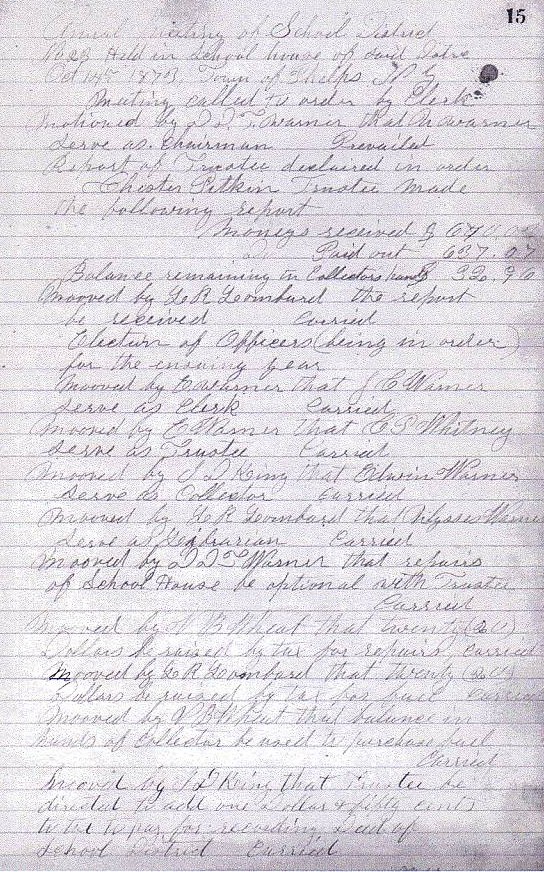 15
Annual Meeting of School District
No 23 Held in School house of said Distre
Oct 14th 1873, Town of Phelps N Y
Meeting called to order by Clerk
Motioned by D. D. T. Warner that Warner
Serve as Chairman Prevailed
Report of Trustee declaired in order
Chester Pitkin Trustee Made
the following report
Moneys received $
Paid out 637.07
Balance remaining in Collectors hands
Mooved by L R Loombard the report
be received Carried
Election of Officers (being in order)
for the ensuing year
Mooved by E Warner that J C Warner
Serve as Clerk Carried
Mooved by E Warner that E P Whitney
Serve as Trustee Carried
Mooved by S D King that Edwin Warner
Serve as Collector Carried
Mooved by L R Loombard that Ulysses Warner
Serve as Librarian Carried
Mooved by D D T Warner that repairs
of School House be optional with Trustee
Carried
Mooved by N B Wheat that twenty (20)
Dollars be raised by tax for repairs Carried
Mooved by L R Loombard that twenty (20)
Dollars be raised by tax for fuel Carried
Mooved by N B Wheat that balance in
hands of Collector be used to purchase fuel
Carried
Mooved by S D King that Trustee be
directed to add one Dollar & fifty cents
to tax to pay for recording Deed of
School District Carried